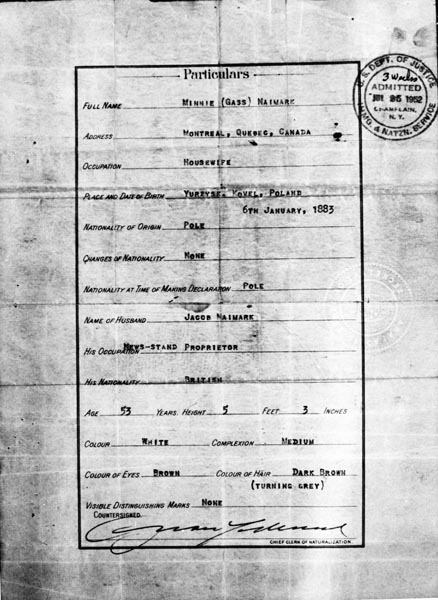 Particulars
FULL NAME MINNIE (GASS) NAIMARK
ADDRESS MONTREAL, QUEBEC, CANADA
OCCUPATION HOUSEWIFE
PLACE AND DATE OF BIRTH YUREYSE, KOVEL, POLAND
6TH JANUARY, 1883
NATIONALITY OF ORIGIN POLE
CHANGES OF NATIONALITY NONE
NATIONALITY AT TIME OF MAKING DECLARATION POLE
NAME OF HUSBAND JACOB NAIMARK
HIS OCCUPATION NEWS-STAND PROPRIETOR
HIS NATIONALITY BRITISH
AGE 53 YEARS. HEIGHT 5 FEET 3 INCHES
COLOUR WHITE COMPLEXION MEDIUM
COLOUR OF EYES BROWN COLOUR OF HAIR DARK BROWN
(TURNING GREY)
VISIBLE DISTINGUISHING MARKS NONE
COUNTERSIGNED.
CHIEF CLERK OF NATURALIZATION.
U.S. DEPT. OF JUSTICE
3 Weeks
ADMITTED
1952
CHAMPLAIN,
N.Y.
IMMG. & NATZN. SERVICE